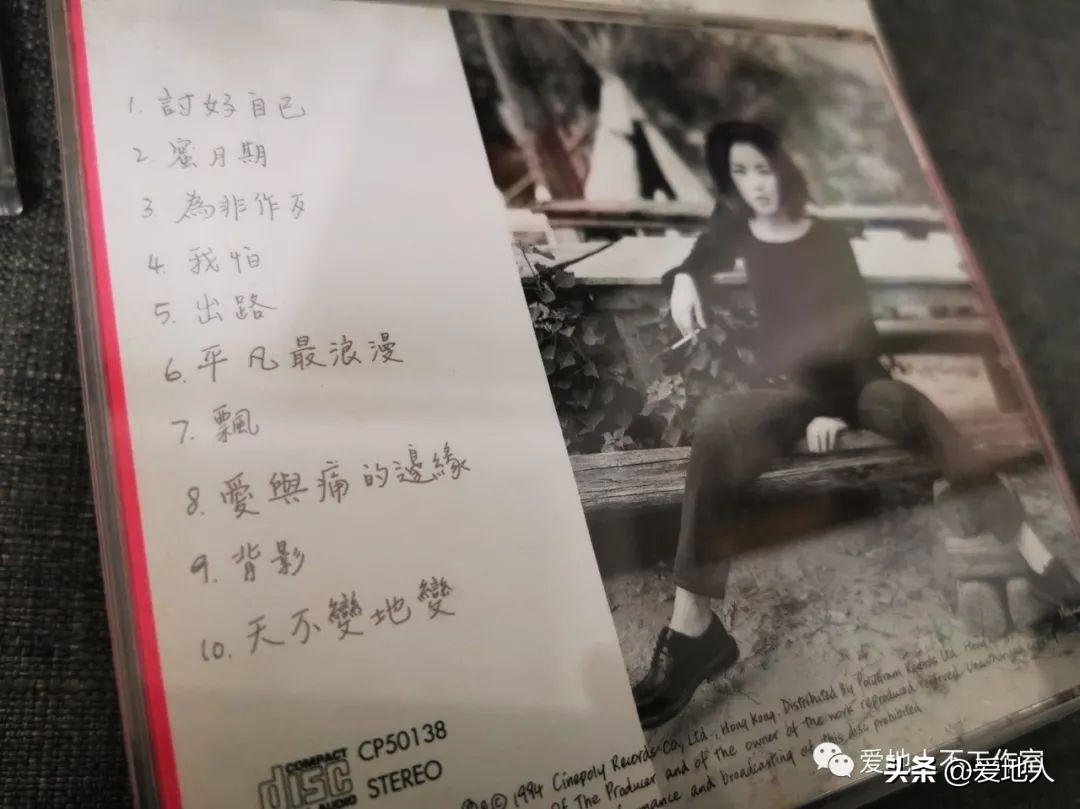 1. 討好自己
2. 蜜月期
3. 為非作歹
4. 我怕
5. 出路
6. 平凡最浪漫
7. 飄
8. 愛與痛的邊緣
9. 背影
10. 天不變地變
COMPACT
disc
AUDIO
CP50138
STEREO
℗© 1994 Cinepoly Records Co., Ltd., Hong Kong. Distributed By PolyGram Records Ltd. Hong
Of The Producer and of the owner of the work reproduced reserved. Unauthorised
formance and broadcasting of this disc prohibited
爱地人不工作室
头条 @爱地人